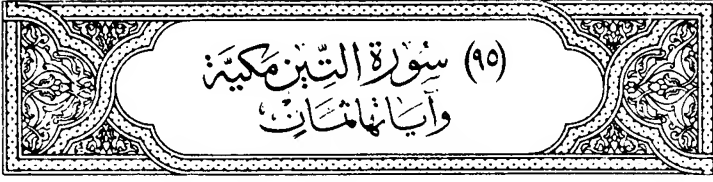 (٩٥) سُوْرَةُ التِّيْنِ مَكِيَّة
وَآيَاتُهَا ثَمَانٍ